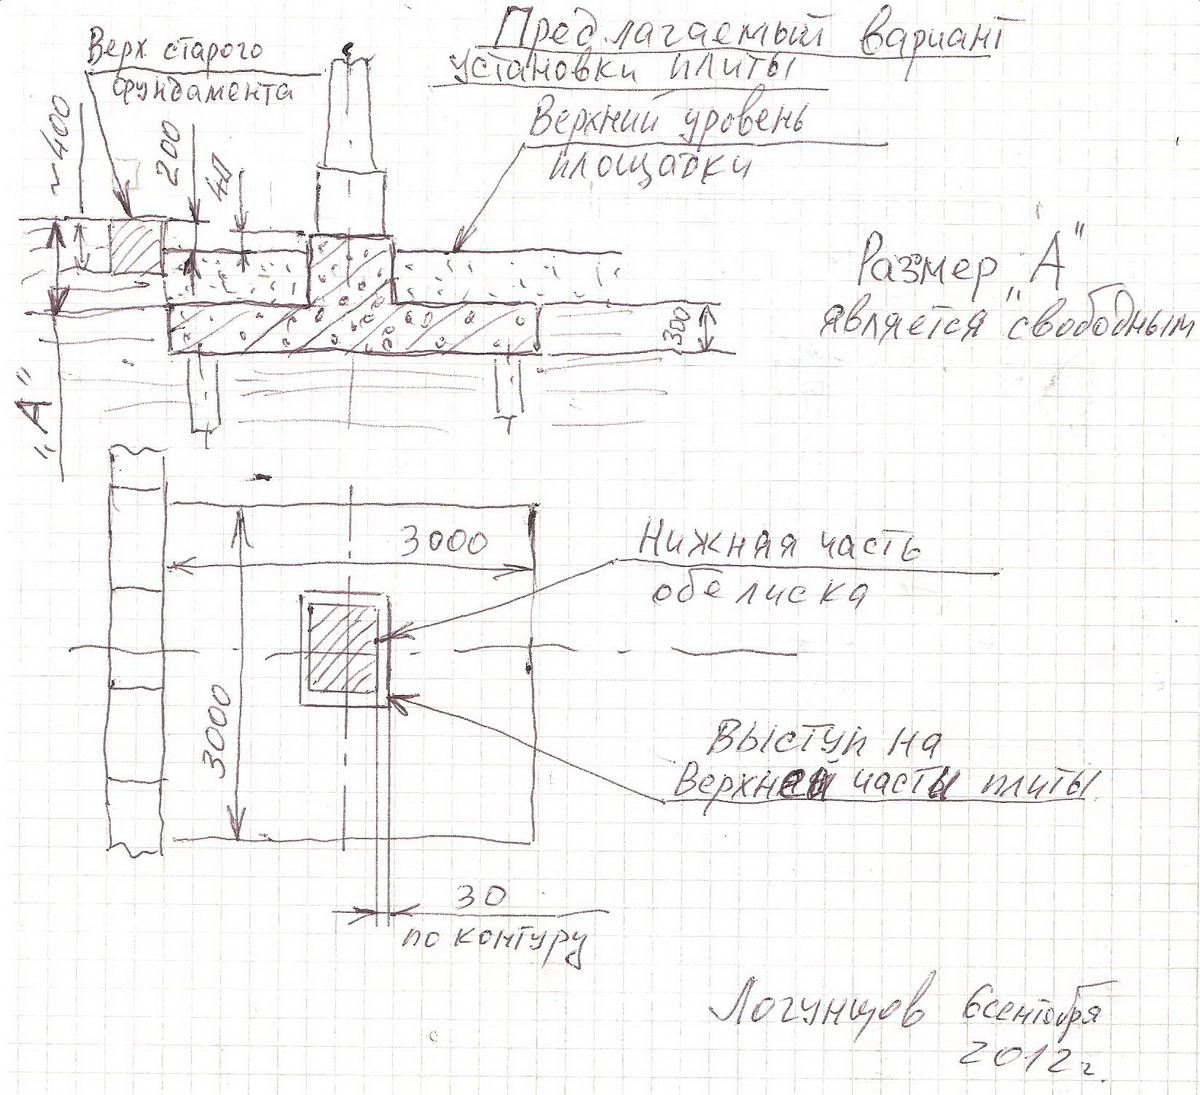 Предлагаемый вариант
установки плиты
Верх старого
фундамента
Верхний уровень
площадки
~400
200
40
Размер „А"
является свободным
300
„А"
3000
Нижняя часть
обелиска
3000
Выступ на
Верхней части плиты
30
по контуру
Логунцов 6 сентября
2012 г.